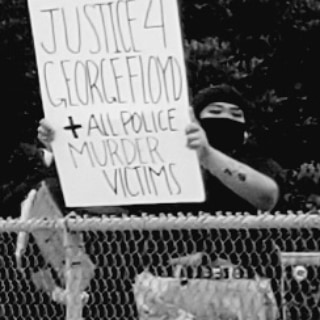 JUSTICE 4
GEORGE FLOYD
+ ALL POLICE
MURDER
VICTIMS